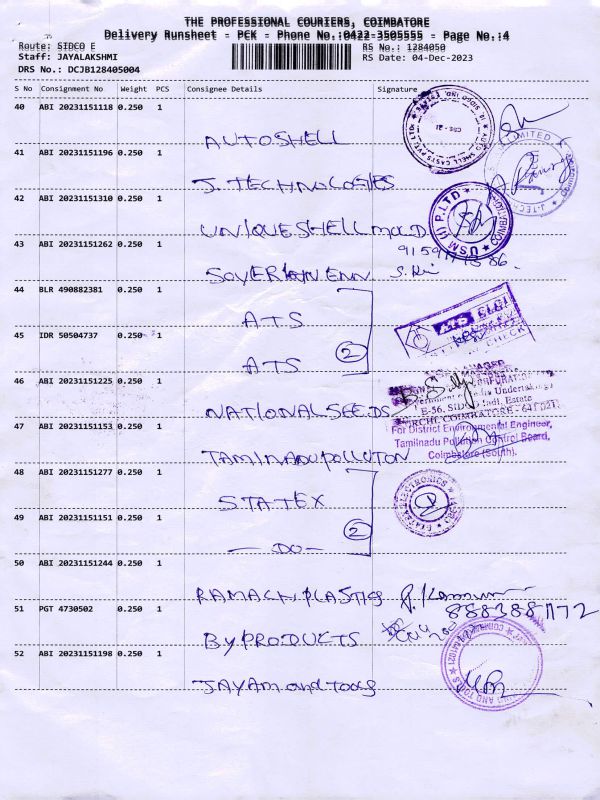 THE PROFESSIONAL COURIERS, COIMBATORE
Delivery Runsheet - PCK - Phone No.:0422-3505555 - Page No.:4
Route: SIDCO E
RS No.: 1284050
Staff: JAYALAKSHMI
RS Date: 04-Dec-2023
DRS No.: DCJB128405004
S No Consignment No Weight PCS Consignee Details Signature
40 ABI 20231151118 0.250 1
AUTOSHELL
41 ABI 20231151196 0.250 1
J. TECHNOLOGIES
42 ABI 20231151310 0.250 1
UNIQUE SHELL MOLD
USM (I) P.LTD
43 ABI 20231151262 0.250 1
44 BLR 490882381 0.250 1
ATS
ATS ELGI
45 IDR 50504737 0.250 1
2
ATS
46 ABI 20231151225 0.250 1
NATIONAL SEEDS
47 ABI 20231151153 0.250 1
For District Environmental Engineer,
Tamilnadu Pollution Control Board,
Coimbatore (South).
TAMINADU POLLUTON
48 ABI 20231151277 0.250 1
STATEX
49 ABI 20231151151 0.250 1
2
- DO -
50 ABI 20231151244 0.250 1
RAMACH PLASTICS
51 PGT 4730502 0.250 1
BYPRODUCTS
52 ABI 20231151198 0.250 1
JAYAM and TOOLS